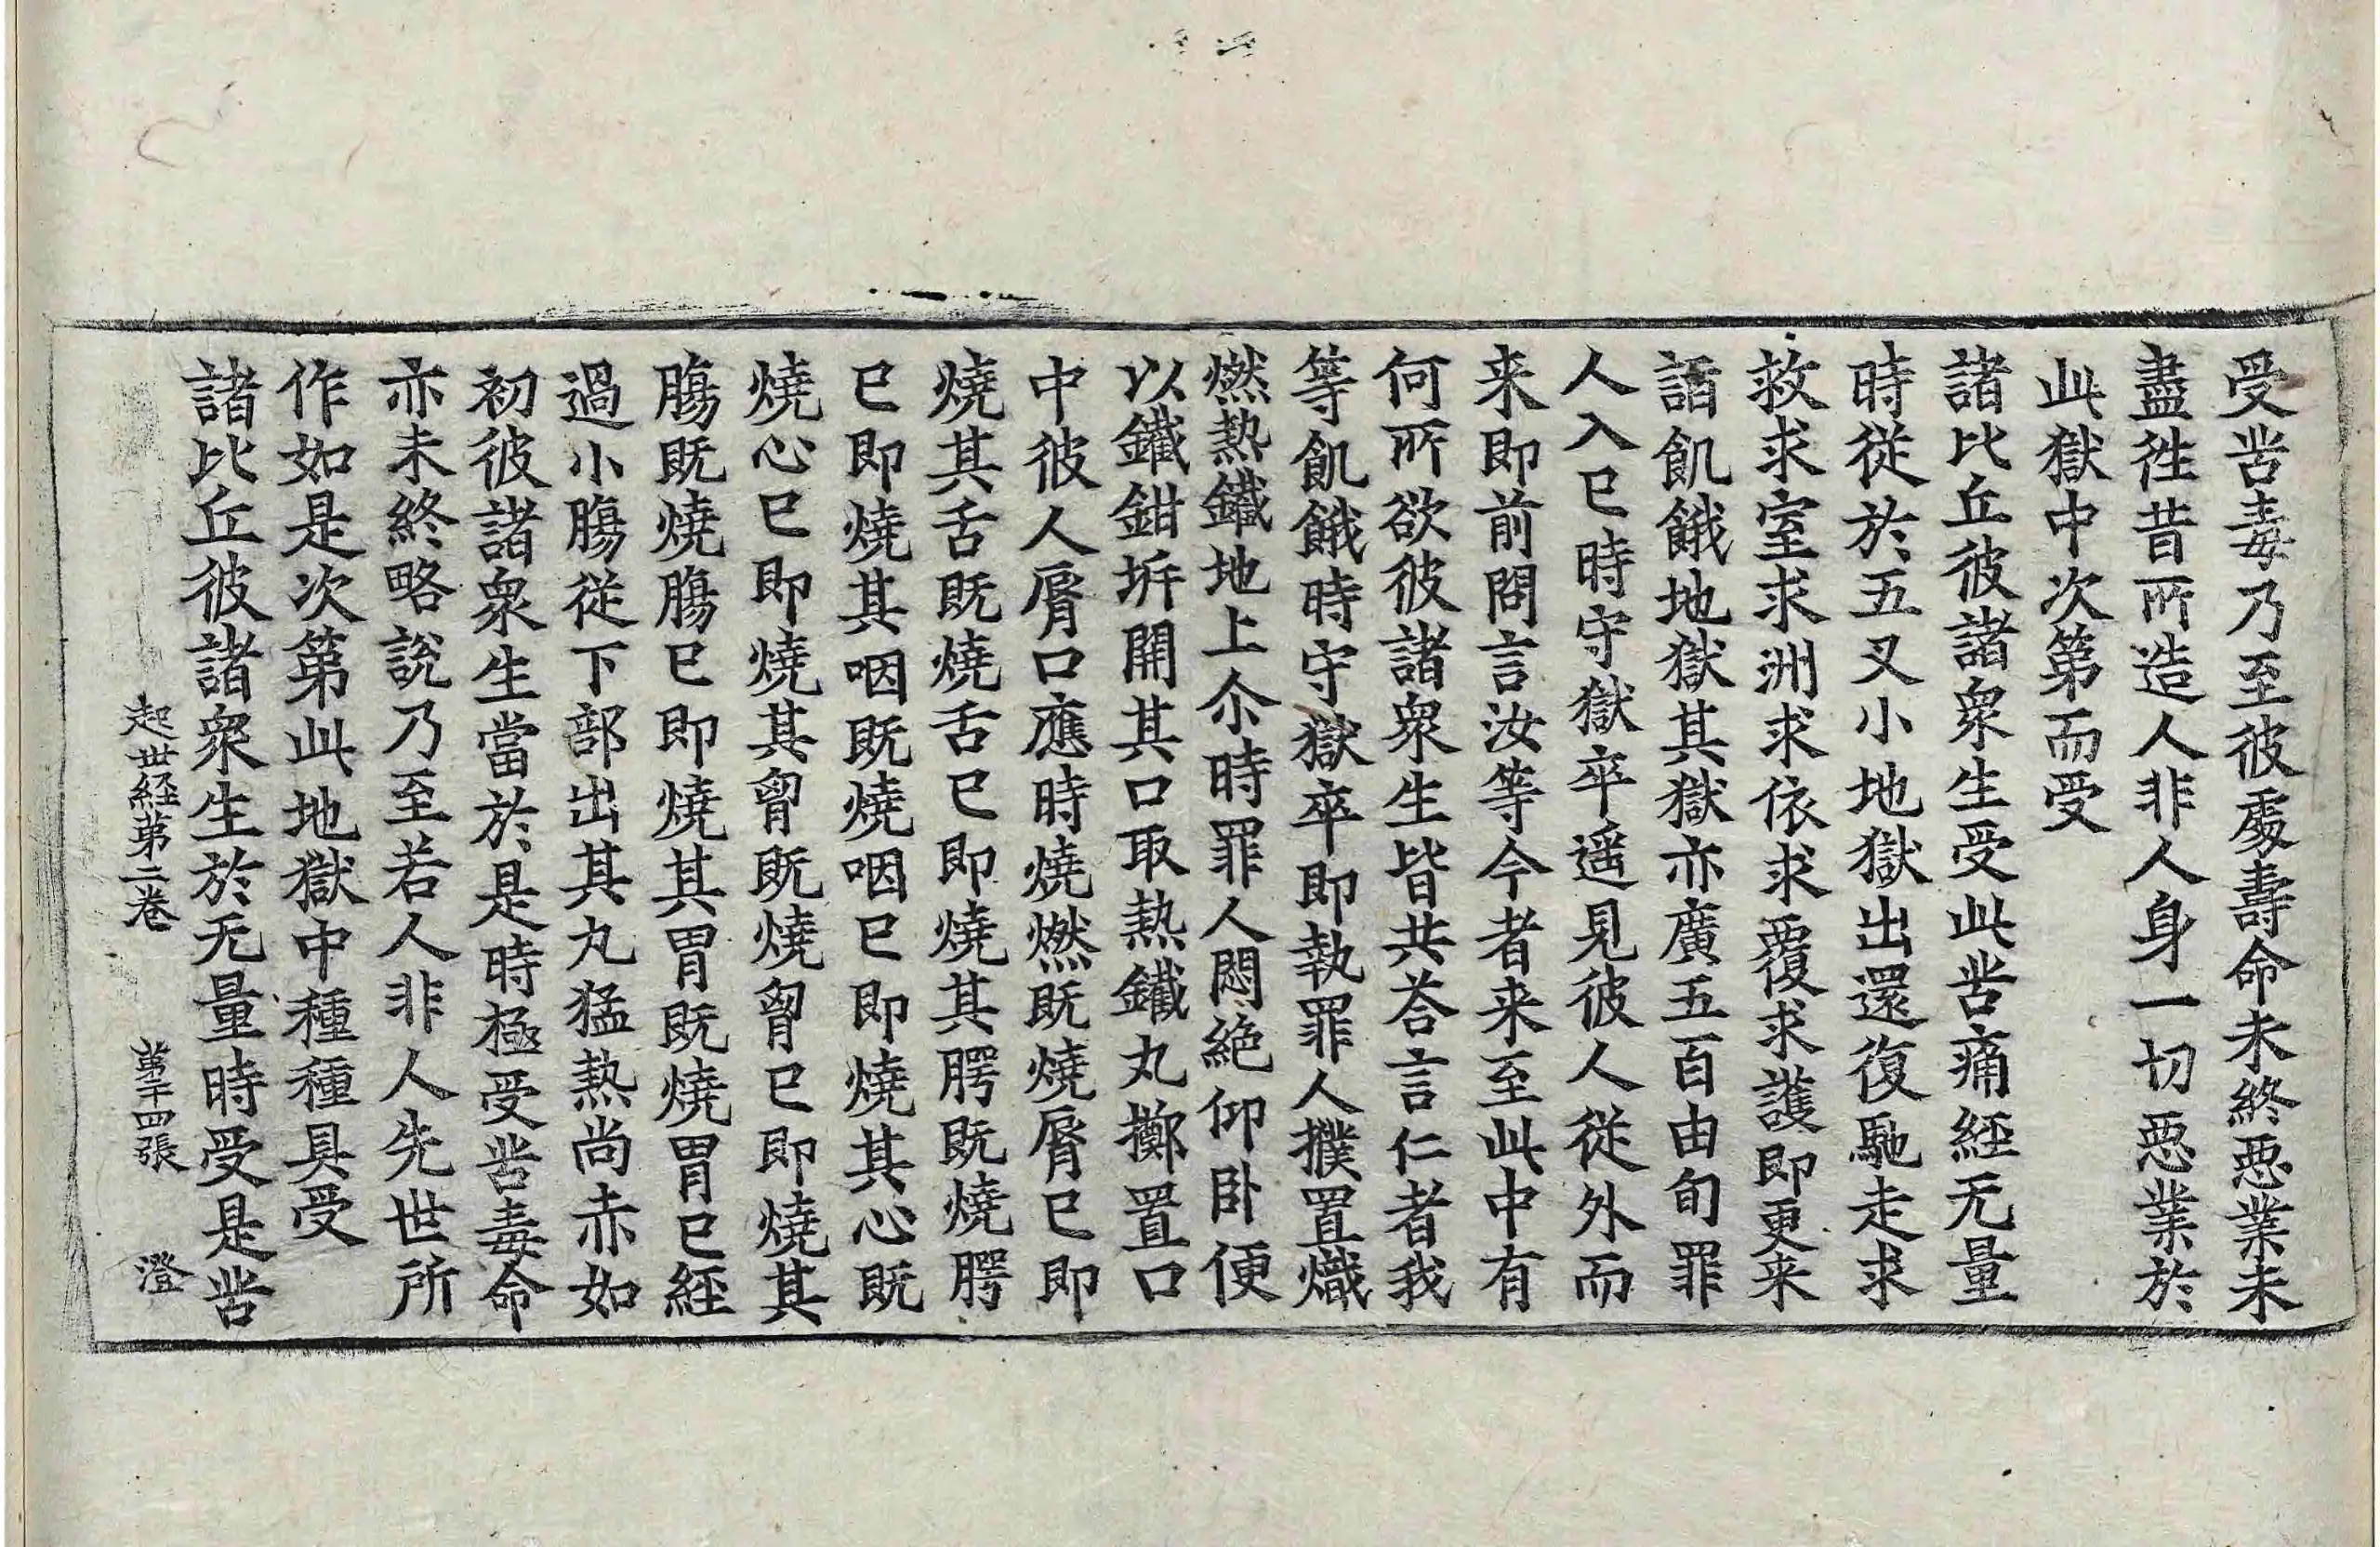 受苦毒乃至彼處壽命未終惡業未
盡徃昔所造人非人身一切惡業於
此獄中次第而受
諸比丘彼諸衆生受此苦痛經无量
時從於五叉小地獄出還復馳走求
救求室求洲求依求覆求護即更来
詣飢餓地獄其獄亦廣五百由旬罪
人入已時守獄卒遥見彼人從外而
来即前問言汝等今者来至此中有
何所欲彼諸衆生皆共荅言仁者我
等飢餓時守獄卒即執罪人撲置熾
燃熱鐵地上尒時罪人悶絶仰卧便
以鐵鉗㭊開其口取熱鐵丸擲置口
中彼人脣口應時燒燃既燒脣已即
燒其舌既燒舌已即燒其腭既燒腭
已即燒其咽既燒咽已即燒其心既
燒心已即燒其胷既燒胷已即燒其
膓既燒膓已即燒其胃既燒胃已經
過小膓從下部出其丸猛熱尚赤如
初彼諸衆生當於是時極受苦毒命
亦未終略說乃至若人非人先世所
作如是次第此地獄中種種具受
諸比丘彼諸衆生於无量時受是苦
起世經第二卷 第十四張 澄